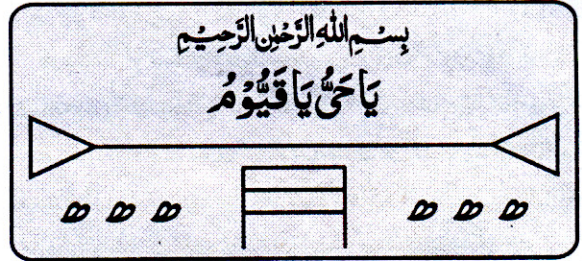 بِسْمِ اللّٰهِ الرَّحْمٰنِ الرَّحِيْمِ
يَا حَىُّ يَا قَيُّوْمُ